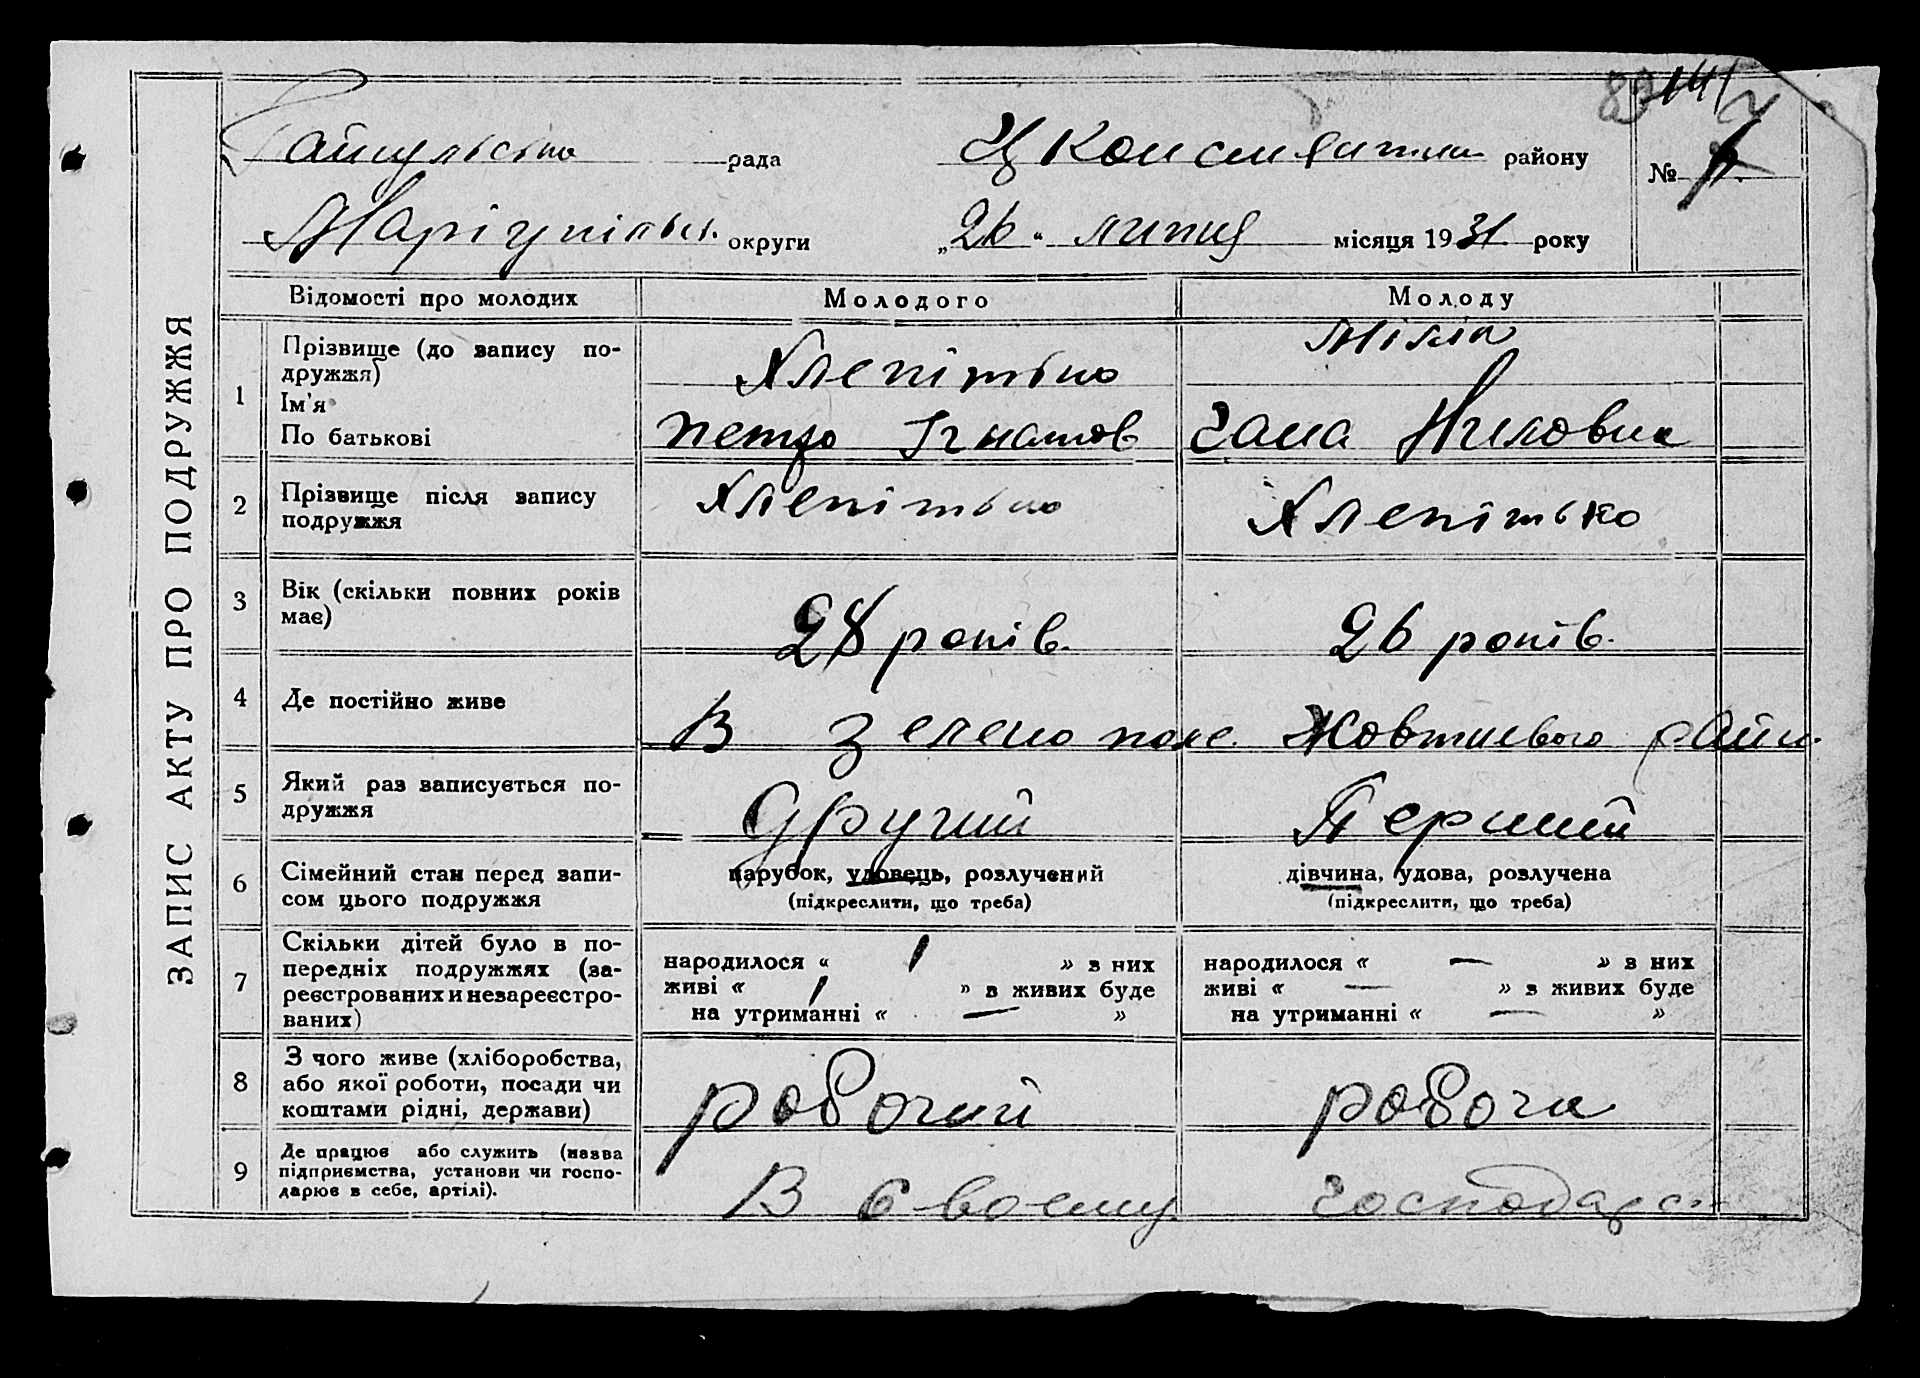 ЗАПИС АКТУ ПРО ПОДРУЖЖЯ
рада району
№
Маріупільськ. округи „26“ липня місяця 1931 року
Відомості про молодих Молодого Молоду
1 Прізвище (до запису по-
дружжя)
Ім'я
По батькові
Хлепітько
Петро Ігнатов Гана Ниловна
2 Прізвище після запису
подружжя
Хлепітько Хлепітько
3 Вік (скільки повних років
має)
28 років. 26 років.
4 Де постійно живе
В зелено поле Жовтневого район.
5 Який раз записується по-
дружжя
Другий Перший
6 Сімейний стан перед запи-
сом цього подружжя
парубок, удовець, розлучений
(підкреслити, що треба)
дівчина, удова, розлучена
(підкреслити, що треба)
7 Скільки дітей було в по-
передніх подружжях (за-
реєстрованих и незареєстро-
ваних)
народилося « 1 » з них
живі « 1 » з живих буде
на утриманні « — »
народилося « — » з них
живі « — » з живих буде
на утриманні « — »
8 З чого живе (хліборобства,
або якої роботи, посади чи
коштами рідні, держави)
робочий робоча
9 Де працює або служить (назва
підприємства, установи чи госпо-
дарює в себе, артілі).
В своєму господарст